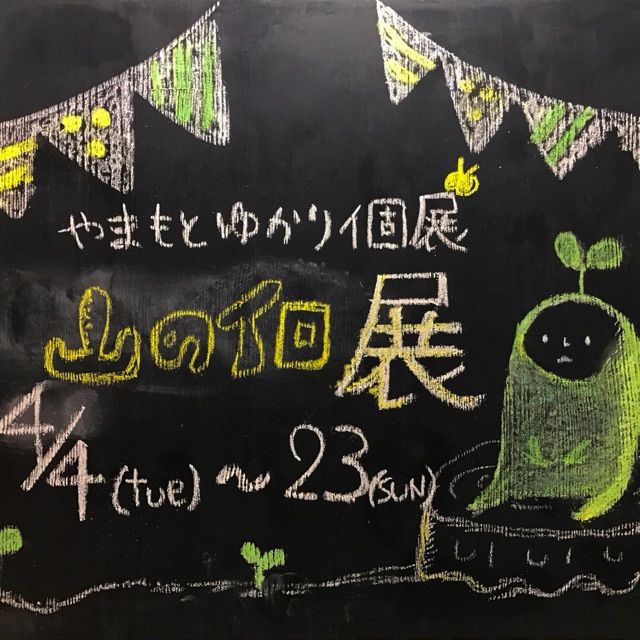 やまもとゆかり個展
山のイロ展
4/4(tue)~23(SUN)